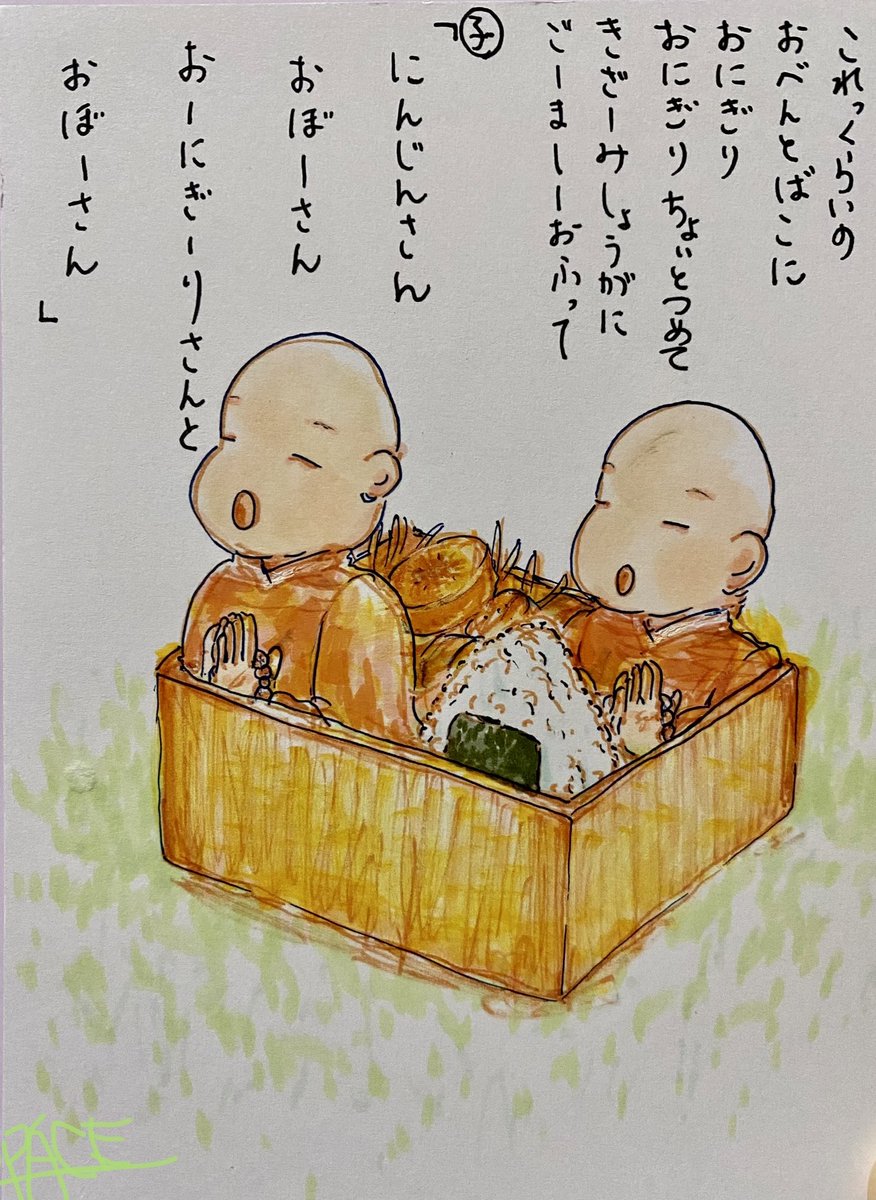 これっくらいの
おべんとばこに
おにぎり
おにぎり ちょいとつめて
きざーみしょうがに
ごーましーおふって
子
「にんじんさん
おぼーさん
おーにぎーりさんと
おぼーさん」
PACE